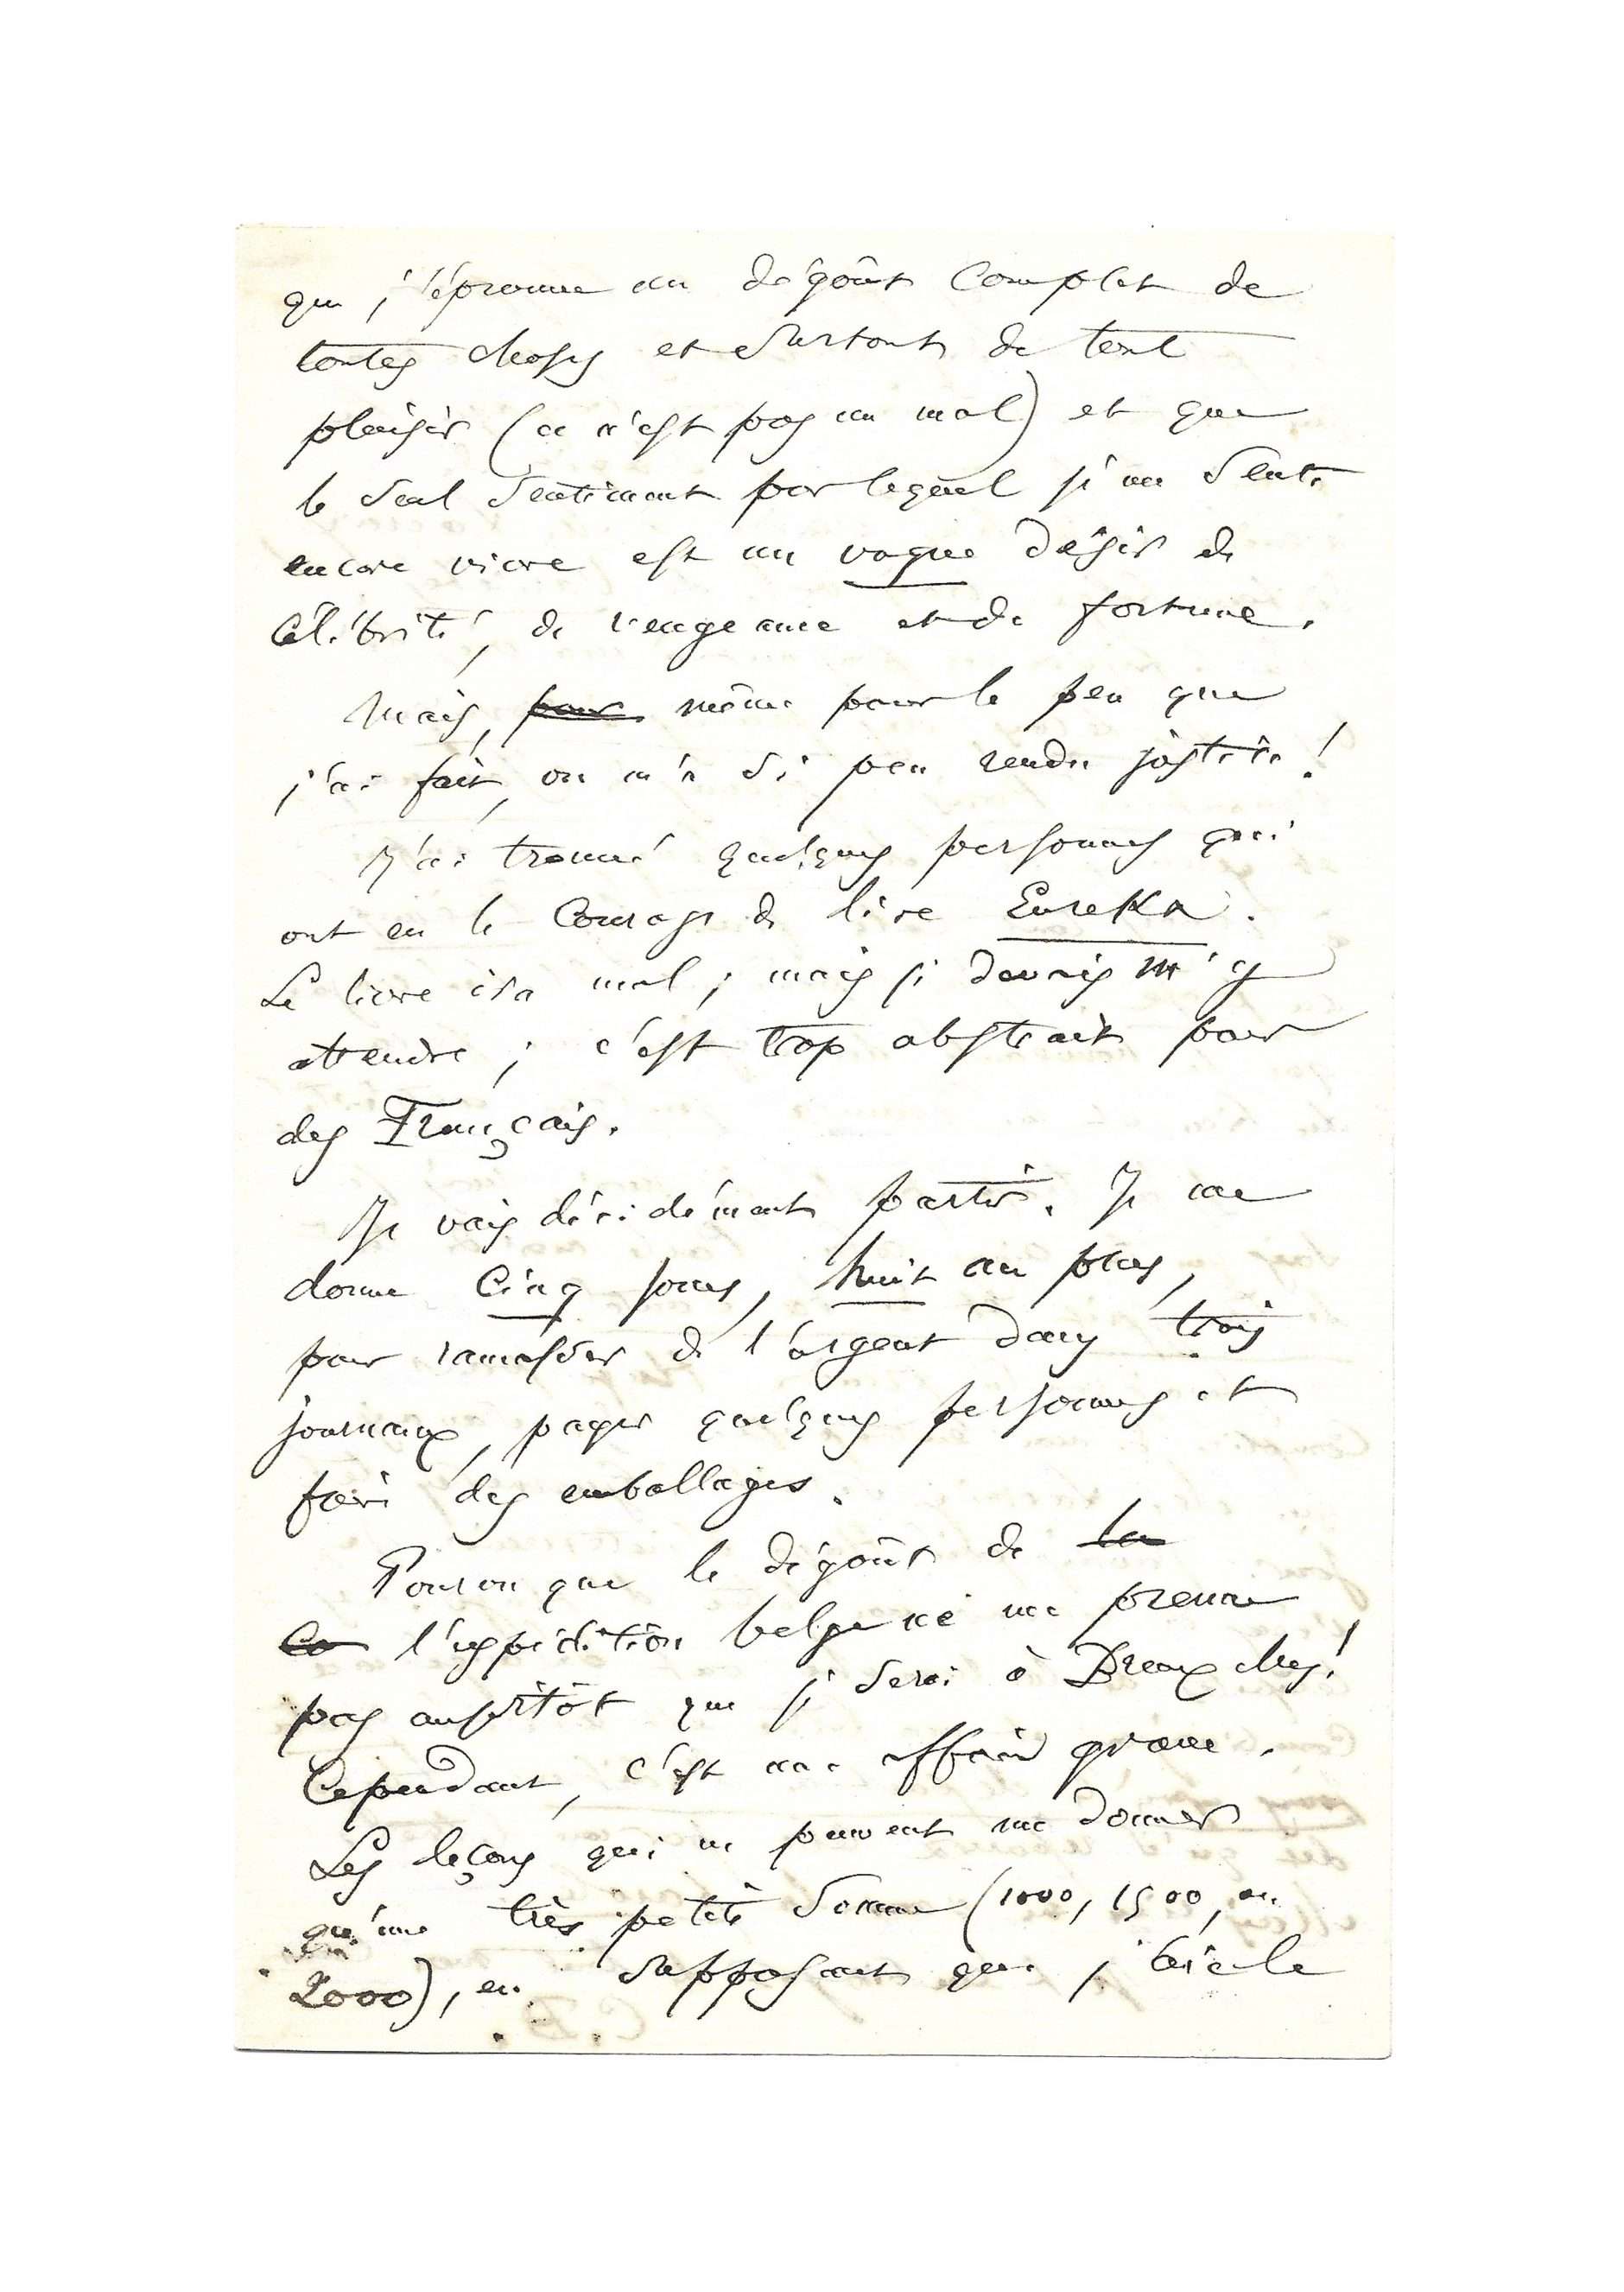 que j'éprouve un dégoût complet de
toutes choses et surtout de tout
plaisir (ce n'est pas un mal) et que
le seul sentiment par lequel je me sente
encore vivre est un vague désir de
célébrité, de vengeance et de fortune.
Mais, pour même pour le peu que
j'ai fait, on m'a si peu rendu justice!
J'ai trouvé quelques personnes qui
ont eu le courage de lire Eureka.
Le livre ira mal ; mais je devais m'y
attendre ; c'est trop abstrait pour
des Français.
Je vais décidément partir. Je me
donne cinq jours, huit au plus,
pour ramasser de l'argent dans trois
journaux, payer quelques personnes et
faire des emballages.
Pourvu que le dégoût de la
la l'expédition belge ne me prenne
pas aussitôt que je serai à Bruxelles!
Cependant, c'est une affaire grave.
Les leçons qui ne peuvent me donner
qu'une très petite somme (1000, 1500, ou
2000), en supposant que j'aie le
C. B.